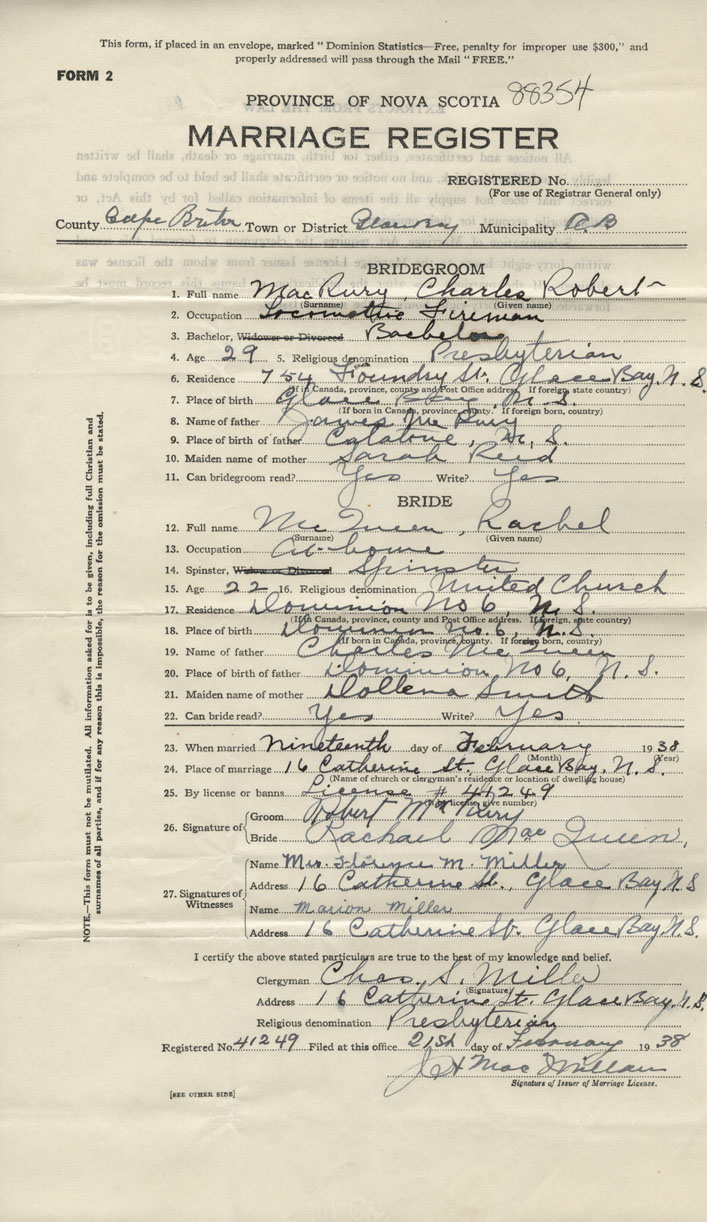 This form, if placed in an envelope, marked "Dominion Statistics—Free, penalty for improper use $300," and
properly addressed will pass through the Mail "FREE."
FORM 2
PROVINCE OF NOVA SCOTIA 88354
MARRIAGE REGISTER
REGISTERED No.
(For use of Registrar General only)
County Cape Breton Town or District Municipality C.B
BRIDEGROOM
1. Full name MacRury, Charles Robert
(Surname) (Given name)
2. Occupation Locomotive Fireman
3. Bachelor, Widower or Divorced Bachelor
4. Age 29 5. Religious denomination Presbyterian
6. Residence 754 Foundry St. Glace Bay, N.S.
(If in Canada, province, county and Post Office address. If foreign, state country)
7. Place of birth Glace Bay, N.S.
(If born in Canada, province, county. If foreign born, country)
8. Name of father James Mc Rury
9. Place of father N.S.
10. Maiden name of mother Sarah Reid
11. Can bridegroom read? Yes Write? Yes
BRIDE
12. Full name Mc Queen, Rachel
(Surname) (Given name)
13. Occupation At-home
14. Spinster, Widow or Divorced Spinster
15. Age 22 16. Religious denomination United Church
17. Residence Dominion No 6, N.S.
(If in Canada, province, county and Post Office address. If foreign, state country)
18. Place of birth Dominion No. 6, N.S.
(If born in Canada, province, county. If foreign born, country)
19. Name of father Charles Mc Queen
20. Place of birth of father Dominion No 6, N.S.
21. Maiden name of mother Dollena Smith
22. Can bride read? Yes Write? Yes.
23. When married Nineteenth day of February 1938
(Month) (Year)
24. Place of marriage 16 Catherine St. Glace Bay, N.S.
(Name of church or clergyman's residence or location of dwelling house)
25. By license or banns License # 41249
(If by license, give number)
26. Signature of Groom Robert MacRury
Bride Rachael MacQueen,
27. Signatures of Witnesses
Name Mrs. Florence M. Miller
Address 16 Catherine St., Glace Bay N.S
Name Marion Miller
Address 16 Catherine St. Glace Bay, N.S.
I certify the above stated particulars are true to the best of my knowledge and belief.
Clergyman Chas. S. Miller
(Signature)
Address 16 Catherine St. Glace Bay, N.S.
Religious denomination Presbyterian
Registered No. 41249 Filed at this office 21st day of February 1938
MacMillan
Signature of Issuer of Marriage License.
[SEE OTHER SIDE]
NOTE.—This form must not be mutilated. All information asked for is to be given, including full Christian and
surnames of all parties, and if for any reason this is impossible, the reason for the omission must be stated.